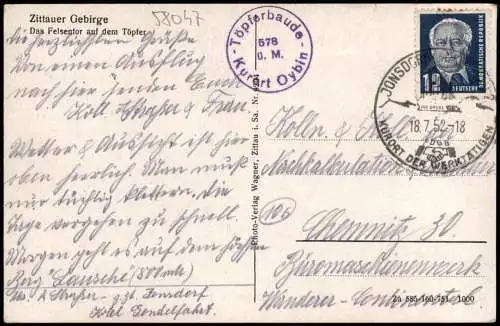 Zittauer Gebirge
Das Felsentor auf dem Töpfer
58047
Töpferbaude
578
ü. M.
Kurort Oybin
12
DEUTSCHE
DEMOKRATISCHE REPUBLIK
18.7.52-18
KURORT DER WERKTÄTIGEN
Die herzlichsten Grüße
von einem Ausflug
nach hier senden Euch
Koll. und Frau.
Wetter & Aussicht ist hier
oben herrlich. Man muß
nur tüchtig klettern. Die
Tage vergehen zu schnell.
Morgen geht es auf den höchsten
Berg "Lausche"
z. Zt. Jonsdorf
Hotel Gondelfahrt.
Photo-Verlag Wagner, Zittau i. Sa.
Kolln. & Koll. der
Nachkalkulation
Chemnitz 30.
Büromaschinenwerk
Wanderer-Continental
Za 585 160 751 1000